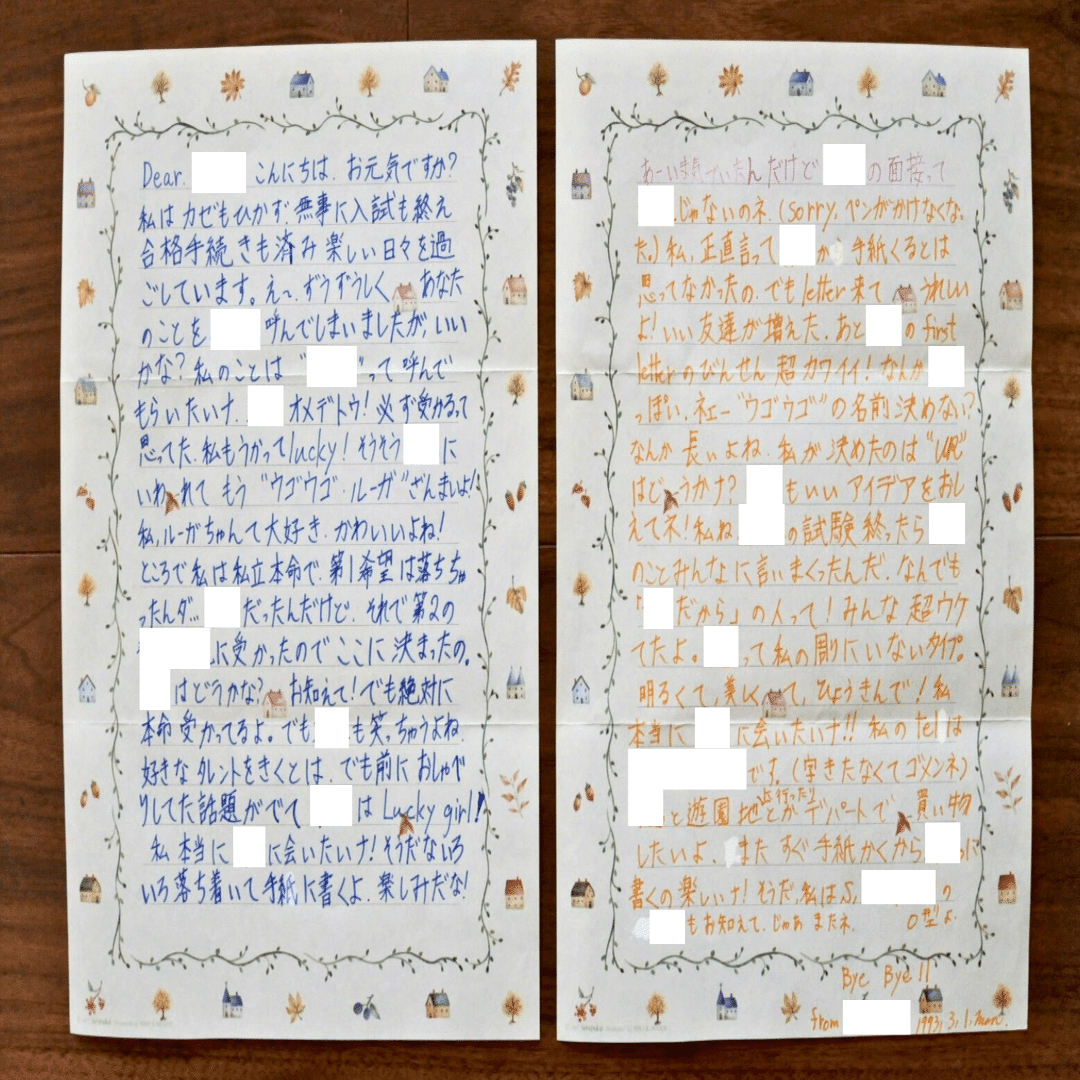 Dear. こんにちは、お元気ですか?
私はカゼもひかず、無事に入試も終え
合格手続きも済み楽しい日々を過
ごしています。えー、ずうずうしく あなた
のことを 呼んでしまいましたが、いい
かな?私のことは“ ”って呼んで
もらいたいナ。 オメデトウ!必ず受かるって
思ってた。私もうかってlucky!そうそう に
いわれて もう “ウゴウゴ・ルーガ”ざんましよ!
私、ルーガちゃんて大好き、かわいいよね!
ところで私は私立本命で、第1希望は落ちちゃ
ったんダ… だったんだけど、それで第2の
に受かったのでここに決まったの。
はどうかな? お知えて!でも絶対に
本命受かってるよ。でも も笑っちゃうよね
好きなタレントをきくとは、でも前におしゃべ
りしてた話題がでて はLucky girl!
私本当に に会いたいナ!そうだないろ
いろ落ち着いて手紙に書くよ、楽しみだな!
あーいま気づいたんだけど の面接って
じゃないのネ。(sorry,ペンがかけなくなっ
た。)私、正直言って か 手紙くるとは
思ってなかったの、でもletter来て うれしい
よ!いい友達が増えた、あと のfirst
letterのびんせん超カワイイ!なんか
っぽい、ネェー“ウゴウゴ”の名前決めない?
なんか長いよね、私が決めたのは
はどうかナ? もいいアイデアをおし
えてネ!私ね、 の試験終ったら
のことみんなに言いまくったんだ、なんでも
「 だから」の人って!みんな超ウケ
てたよ。 って私の周りにいないタイプ。
明るくて、美しくて、ひょうきんで!私
本当に に会いたいナ!!私のtelは
です。(字きたなくてゴメンネ)
と遊園地行ったりとかデパートで 買い物
したいよ、 またすぐ手紙かくから に
書くの楽しいナ!そうだ、私はS, の
もお知えて、じゃあ またネ. O型よ.
Bye Bye!!
from 1993, 3, 1, mon.